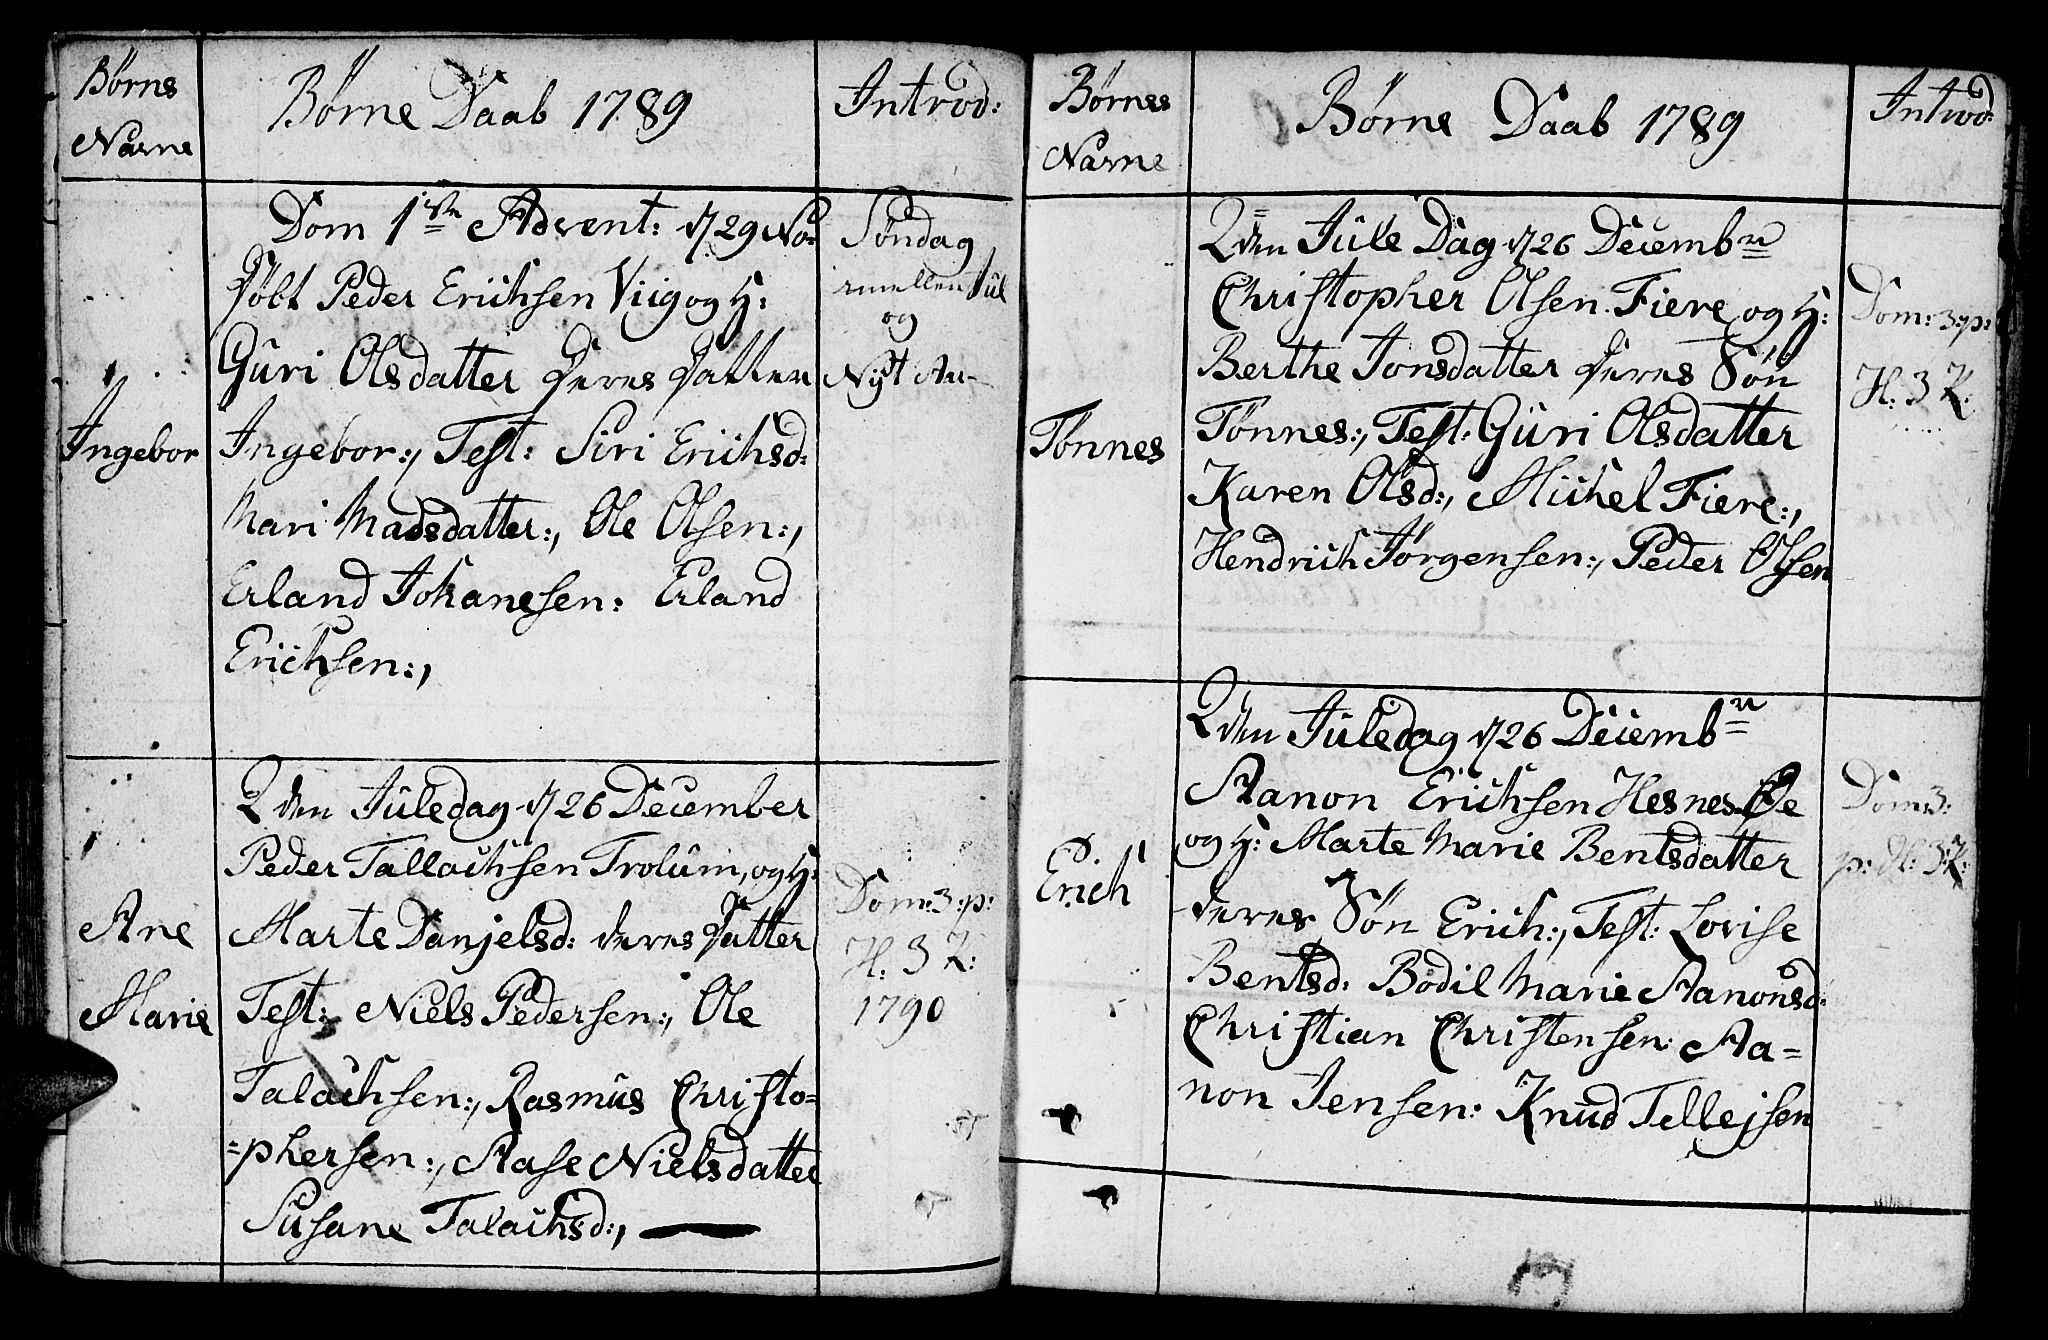 Børns
Navne
Børne Daab 1789
Introd:
Ingebor
Dom 1ste Advent: d 29 No:
Døbt Peder Erichsen Viig og H:
Guri Olsdatter Deres Datter
Ingebor:, Test: Siri Erichsd:
Mari Madsdatter:, Ole Olsen:,
Erland Johanesen: Erland
Erichsen:,
Søndag
imellem Jul
og
Nyt Aar
Ane
Marie
2den Juledag d 26 December
Peder Tallachsen Trolum, og H:
Marte Danjelsd: deres Datter
Test: Niels Pedersen:, Ole
Talachsen:, Rasmus Christo=
=phersen:, Aase Nielsdatter
Susane Talachsd:,
Dom: 3: p:
H: 3 K:
1790
Børnes
Navne
Børne Daab 1789
Introd:
Tønnes
2den Jule Dag d 26 Decembr
Christopher Olsen Fiere og H:
Berthe Jonsdatter Deres Søn
Tønnes:, Test: Guri Olsdatter
Karen Olsd:, Michel Fiere:,
Hendrich Jørgensen:, Peder Olsen
Dom: 3: p:
H: 3 K:
Erich
2den Juledag d 26 Decembr
Aanon Erichsen Hesnes Øe
og H: Marte Marie Bentsdatter
deres Søn Erich:, Test: Lovise
Bentsd: Bodil Marie Aanonsd:
Christian Christensen: Aa=
non Jensen: Knud Tellejsen
Dom: 3:
p: H: 3: K: